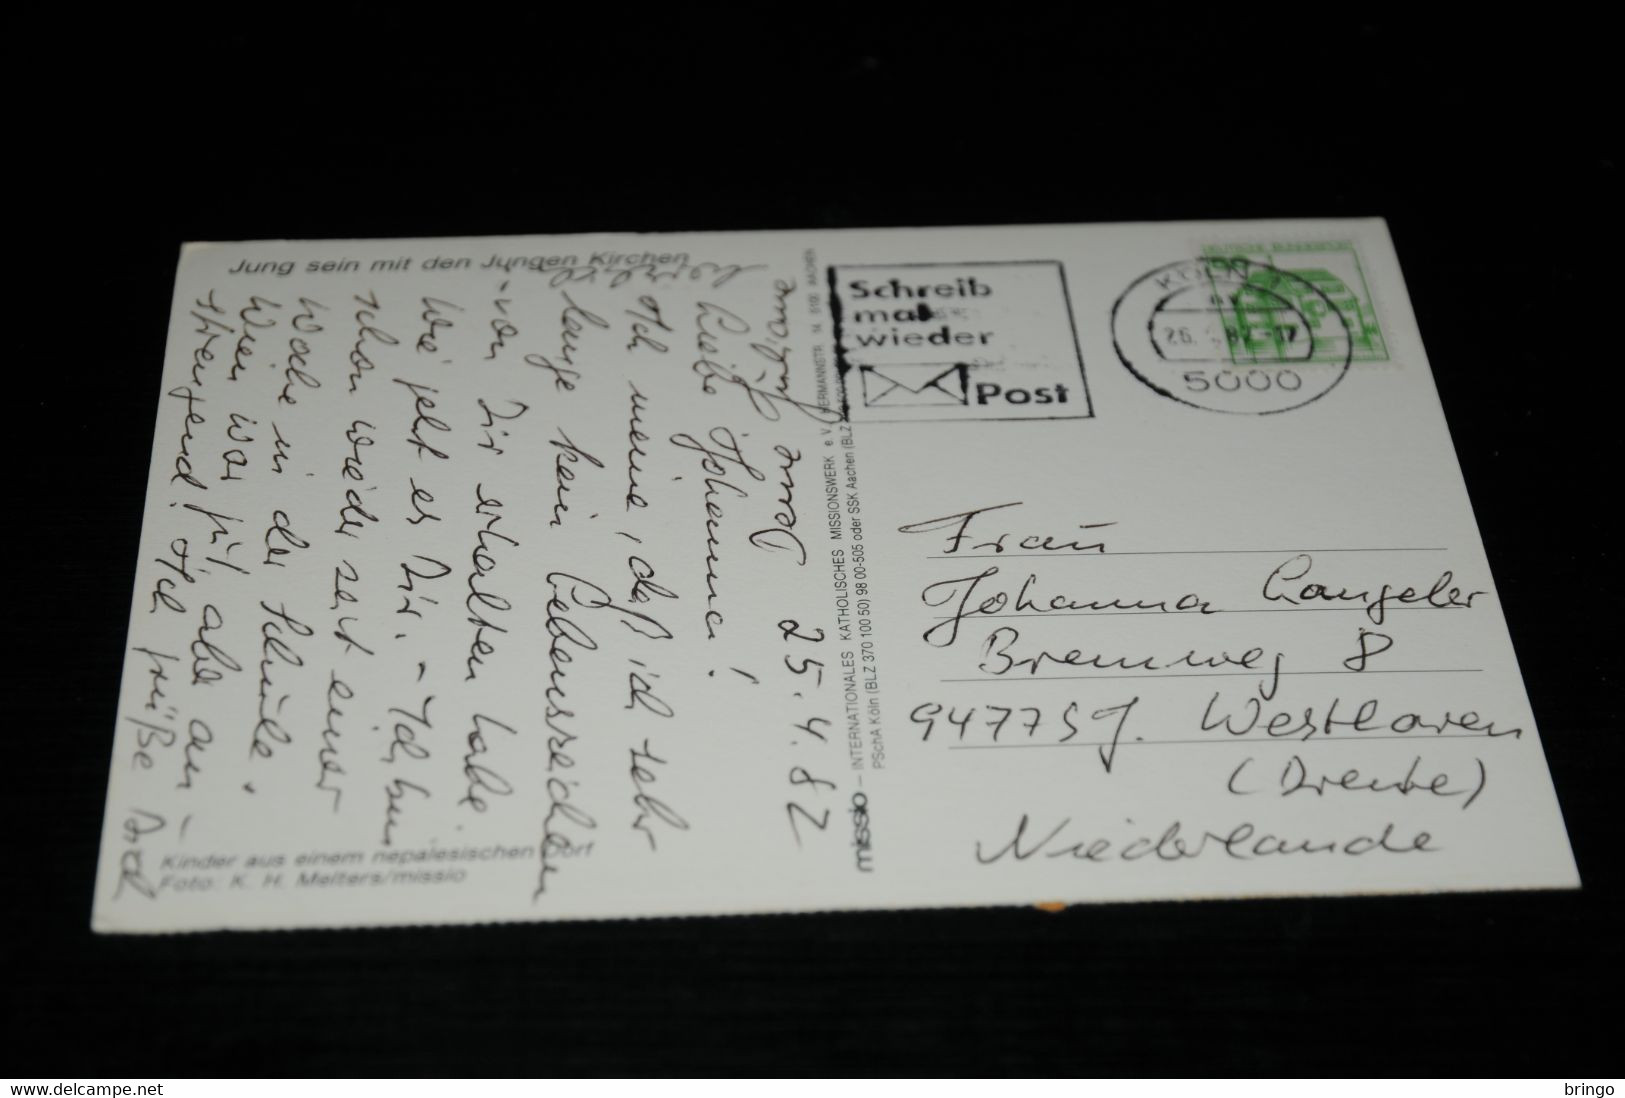 Jung sein mit den Jungen Kirchen
25.4.82
Liebe Johanna!
Ich meine, daß ich sehr
lange kein Lebenszeichen
von Dir erhalten habe.
Wie geht es Dir. - Ich bin
schon wieder seit einer
Woche in der Schule.
Wien war gut, aber an-
strengend! Ich grüße Dich
Kinder aus einem nepalesischen Dorf
Foto: K. H. Melters/missio
missio – INTERNATIONALES KATHOLISCHES MISSIONSWERK e. V. HERMANNSTR. 14 5100 AACHEN
PSchA Köln (BLZ 370 100 50) 98 00-505 oder SSK Aachen (BLZ
Schreib
mal
wieder
Post
KÖLN
26. 82-17
5000
DEUTSCHE BUNDESPOST
Frau
Johanna Langeler
Bremweg 8
9477SJ. Westlaren
(Drente)
Niederlande
www.delcampe.net
bringo